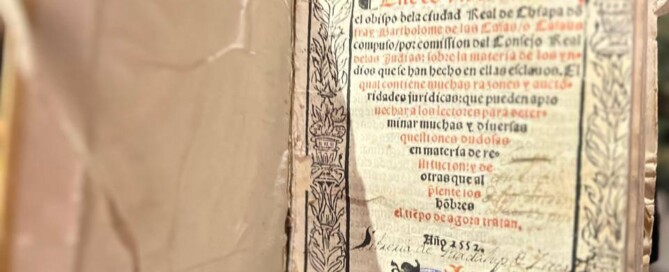 el obispo dela ciudad Real de Chiapa dõ
fray Bartholome de las Casas/o Casaus
compuso/por comission del Consejo Real
delas Indias: sobre la materia de los yn⸗
dios que se han hecho en ellas esclauos. El
qual contiene muchas razones y aucto⸗
ridades juridicas: que pueden apro
uechar a los lectores para deter⸗
minar muchas y diuersas
questiones dudosas
en materia de re⸗
stitucion: y de
otras que al
presente los
hõbres
el tiẽpo de agora tratan.
Año 1552.